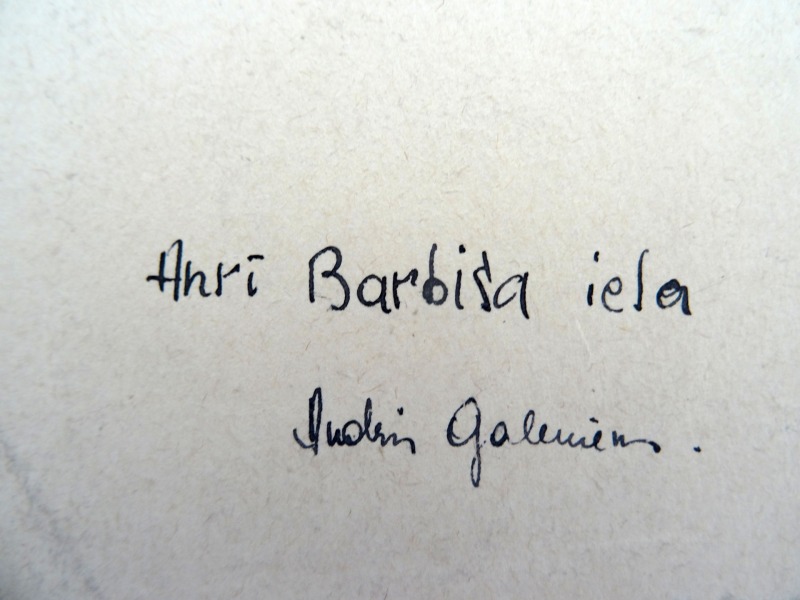 Anrī Barbisa iela
Andris Galenieks.